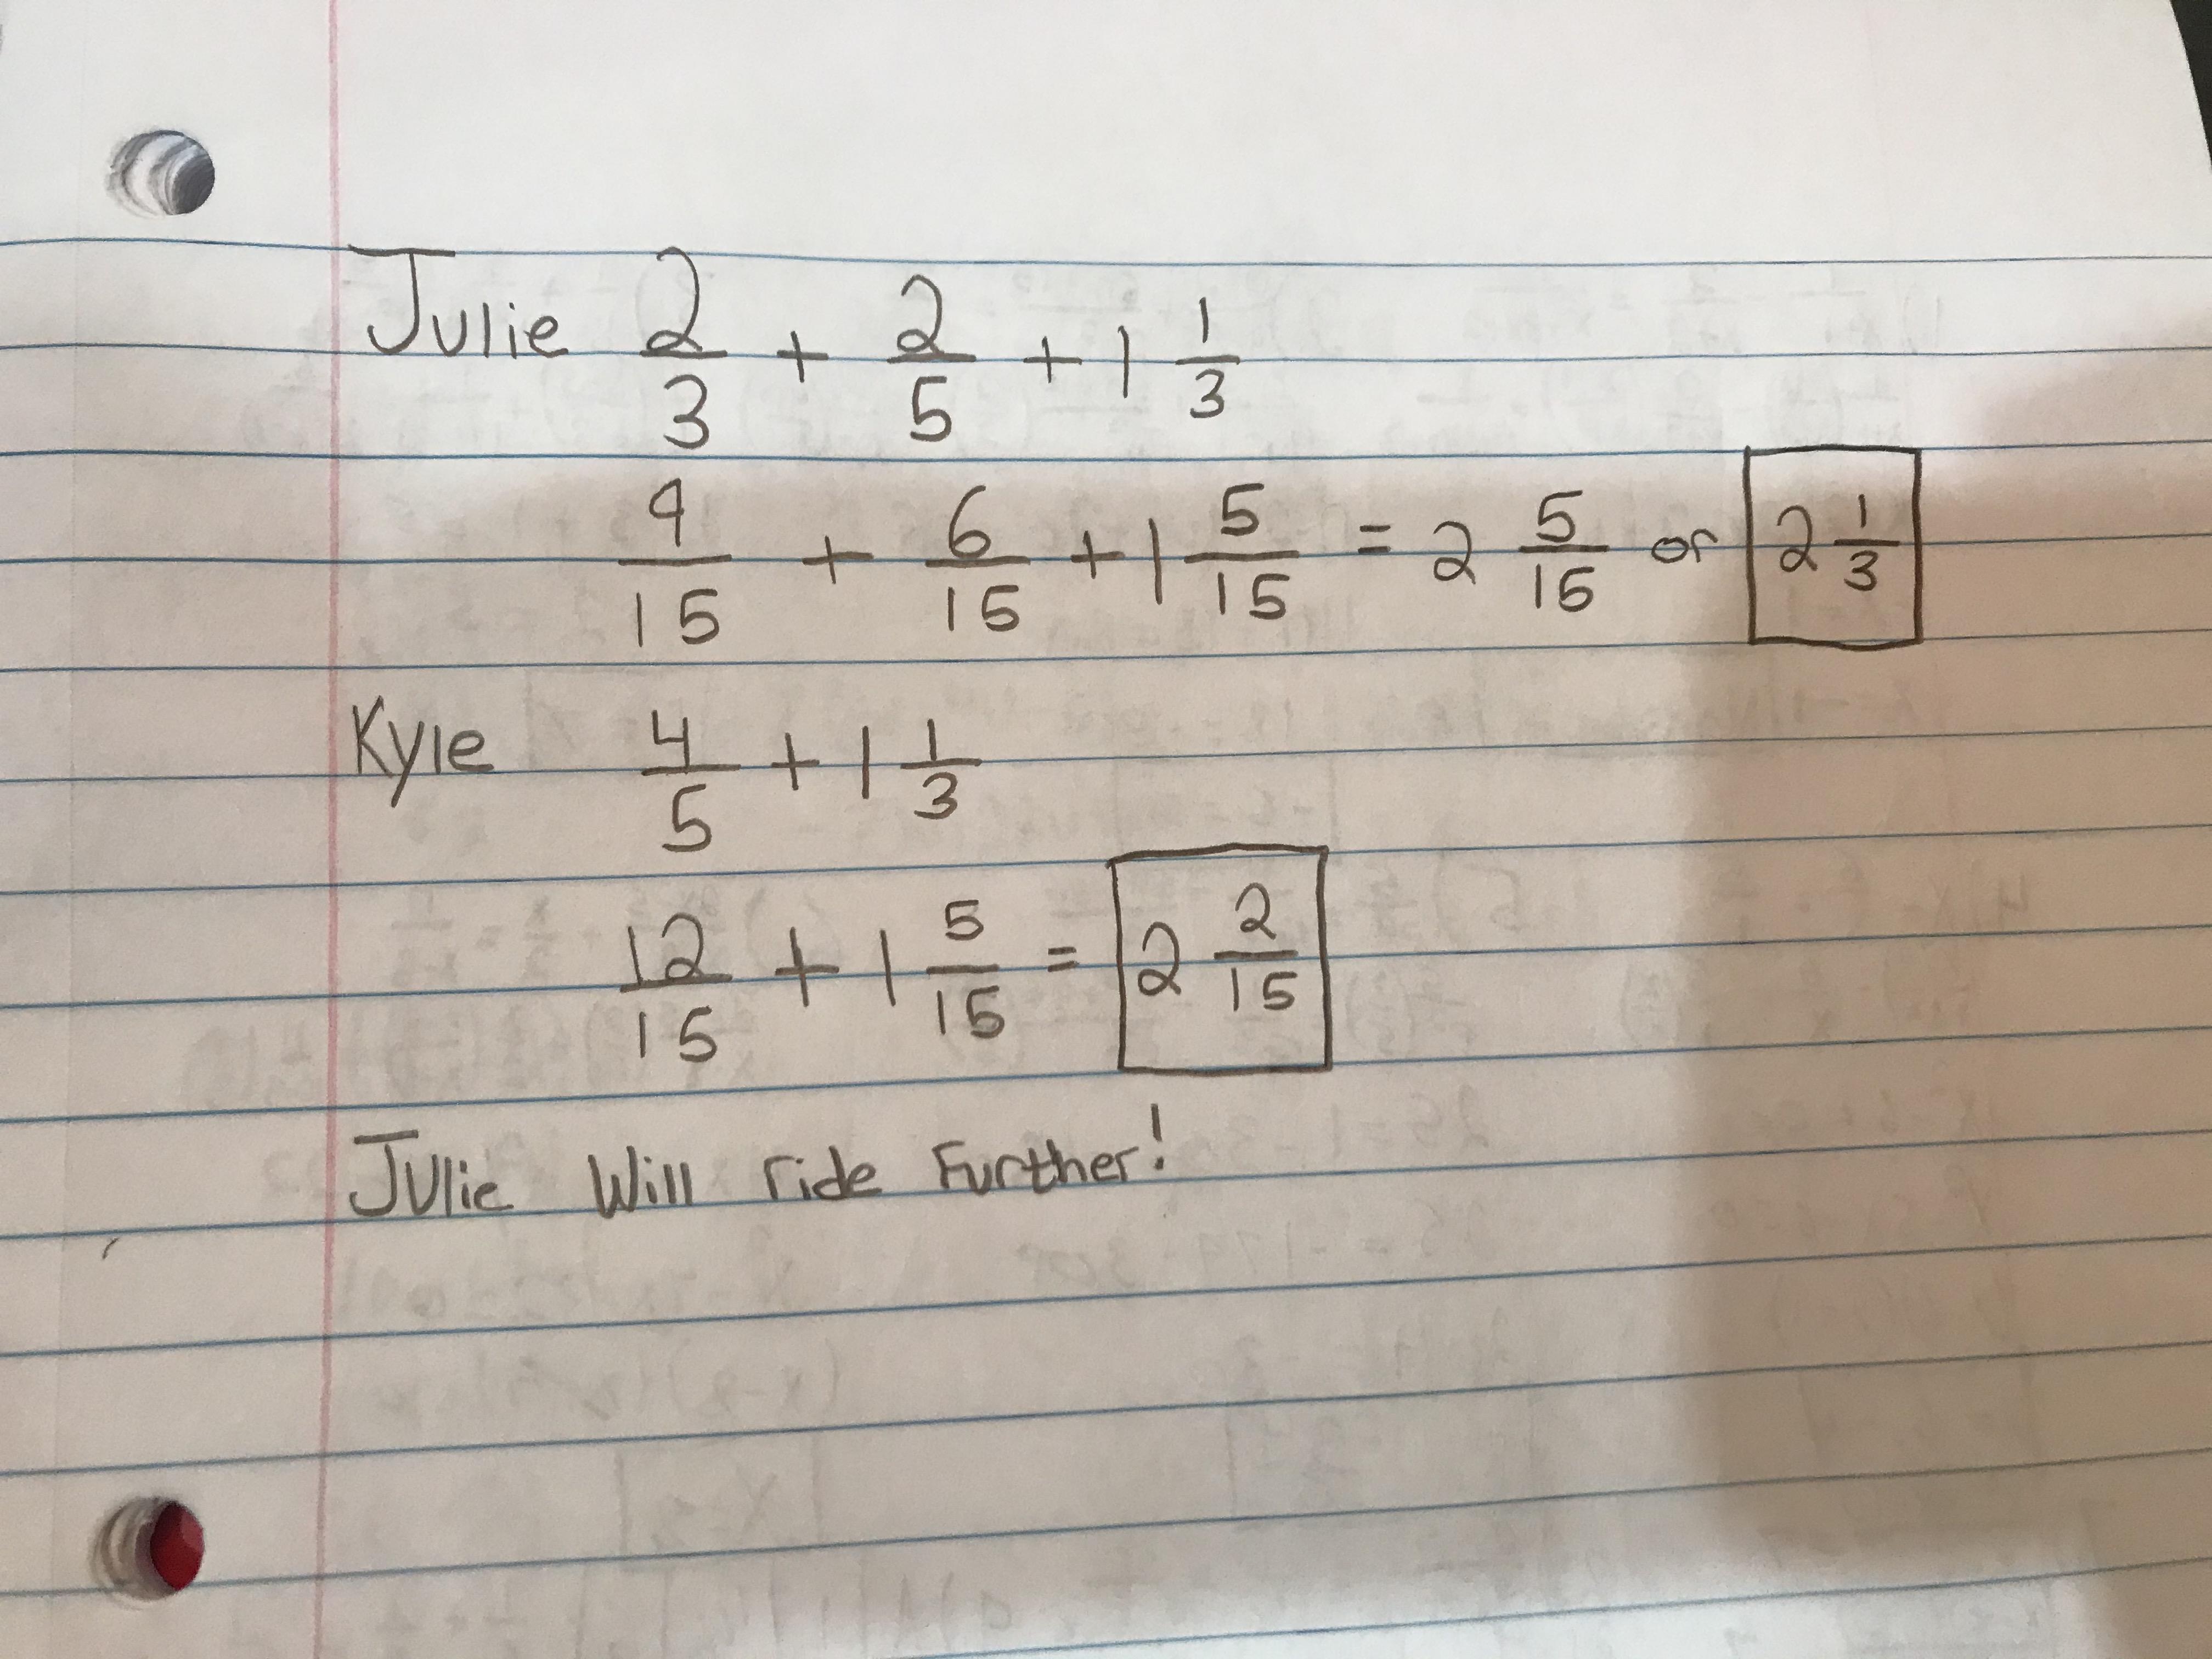 Julie 2/3 + 2/5 + 1 1/3
9/15 + 6/15 + 1 5/15 = 2 5/15 or 2 1/3
Kyle 4/5 + 1 1/3
12/15 + 1 5/15 = 2 2/15
Julie Will ride Further!